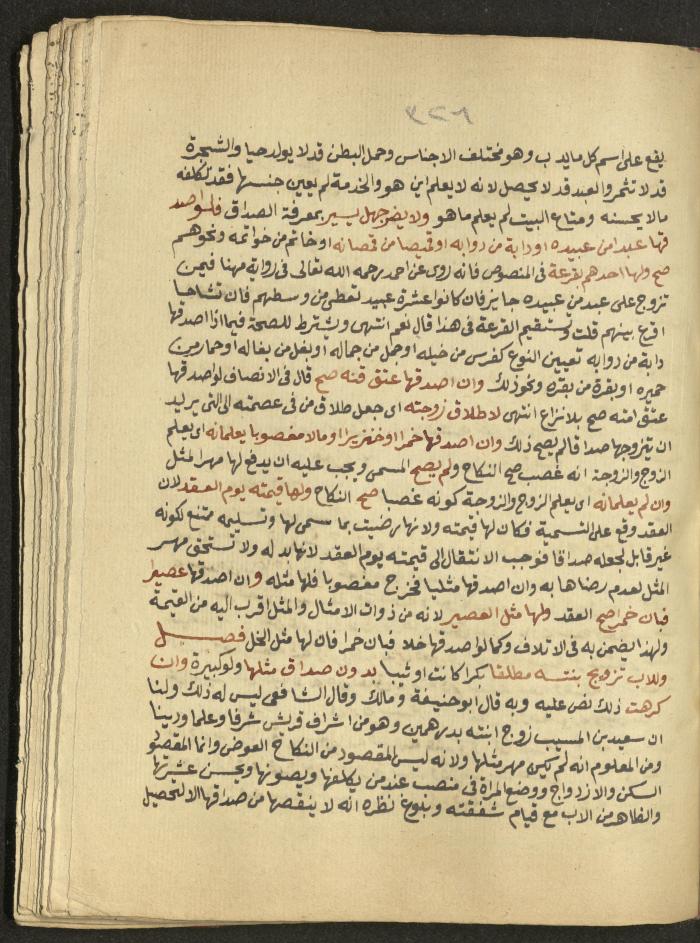 ٣٢٦
يقع على اسم كل ما يدب وهو مختلف الاجناس وحمل البطن قد لا يولد حيا والشجرة
قد لا تثمر والعبد قد لا يحصل لانه لا يعلم اين هو والخدمة لم يعين جنسها فقد تكلفه
مالا يحسنه ومتاع البيت لم يعلم ما هو ولا يضر جهل يسير بمعرفة الصداق فلو اصد
قها عبدا من عبيده او دابة من دوابه او قميصا من قمصانه او خاتم من خواتمه ونحوهم
صح ولها احدهم بقرعة في المنصوص فانه روى عن احمد رحمه الله تعالى في رواية مهنا فيمن
تزوج على عبد من عبيده جايز فان كانوا عشرة عبيد تعطى من وسطهم فان تشاحا
اقرع بينهم قلت وتستقيم القرعة في هذا قال نعم انتهى ويشترط للصحة فيما اذا اصدقها
دابة من دوابه تعيين النوع كفرس من خيله او جمل من جماله او بغل من بغاله او حمار من
حميره او بقرة من بقره ونحو ذلك وان اصدقها عتق قنه صح قال في الانصاف لو اصدقها
عتق امته صح بلا نزاع انتهى لا طلاق زوجته اى جعل طلاق من في عصمته الى التي يريد
ان يتزوجها صداقا لم يصح ذلك وان اصدقها خمرا او خنزيرا او مالا مغصوبا يعلمانه اى يعلم
الزوج والزوجة انه غصب صح النكاح ولم يصح المسمى ويجب عليه ان يدفع لها مهر المثل
وان لم يعلمانه اى يعلم الزوج والزوجة كونه غصبا صح النكاح ولها قيمته يوم العقد لان
العقد وقع على التسمية فكان لها قيمته ولانها رضيت بما سمى لها وتسليمه ممتنع لكونه
غير قابل لجعله صداقا فوجب الانتقال الى قيمته يوم العقد لانها بدله ولا تستحق مهر
المثل لعدم رضاها به وان اصدقها مثليا فخرج مغصوبا فلها مثله وان اصدقها عصيرا
فبان خمرا صح العقد ولها مثل العصير لانه من ذوات الامثال والمثل اقرب اليه من القيمة
ولهذا يضمن به في الاتلاف وكما لو اصدقها خلا فبان خمرا فان لها مثل الخل فصـــل
وللاب تزويج بنته مطلقا بكرا كانت او ثيبا بدون صداق مثلها ولو كبيرة وان
كرهت ذلك نص عليه وبه قال ابو حنيفة ومالك وقال الشافعى ليس له ذلك ولنا
ان سعيد بن المسيب زوج ابنته بدرهمين وهو من اشراف قريش شرفا وعلما ودينا
ومن المعلوم انه لم يكن مهر مثلها ولانه ليس المقصود من النكاح العوض وانما المقصود
السكن والازدواج ووضع المراة في منصب عند من يكلفها ويصونها ويحسن عشرتها
والظاهر من الاب مع قيام شفقته وبلوغ نظره انه لا ينقصها من صداقها الا لتحصيل